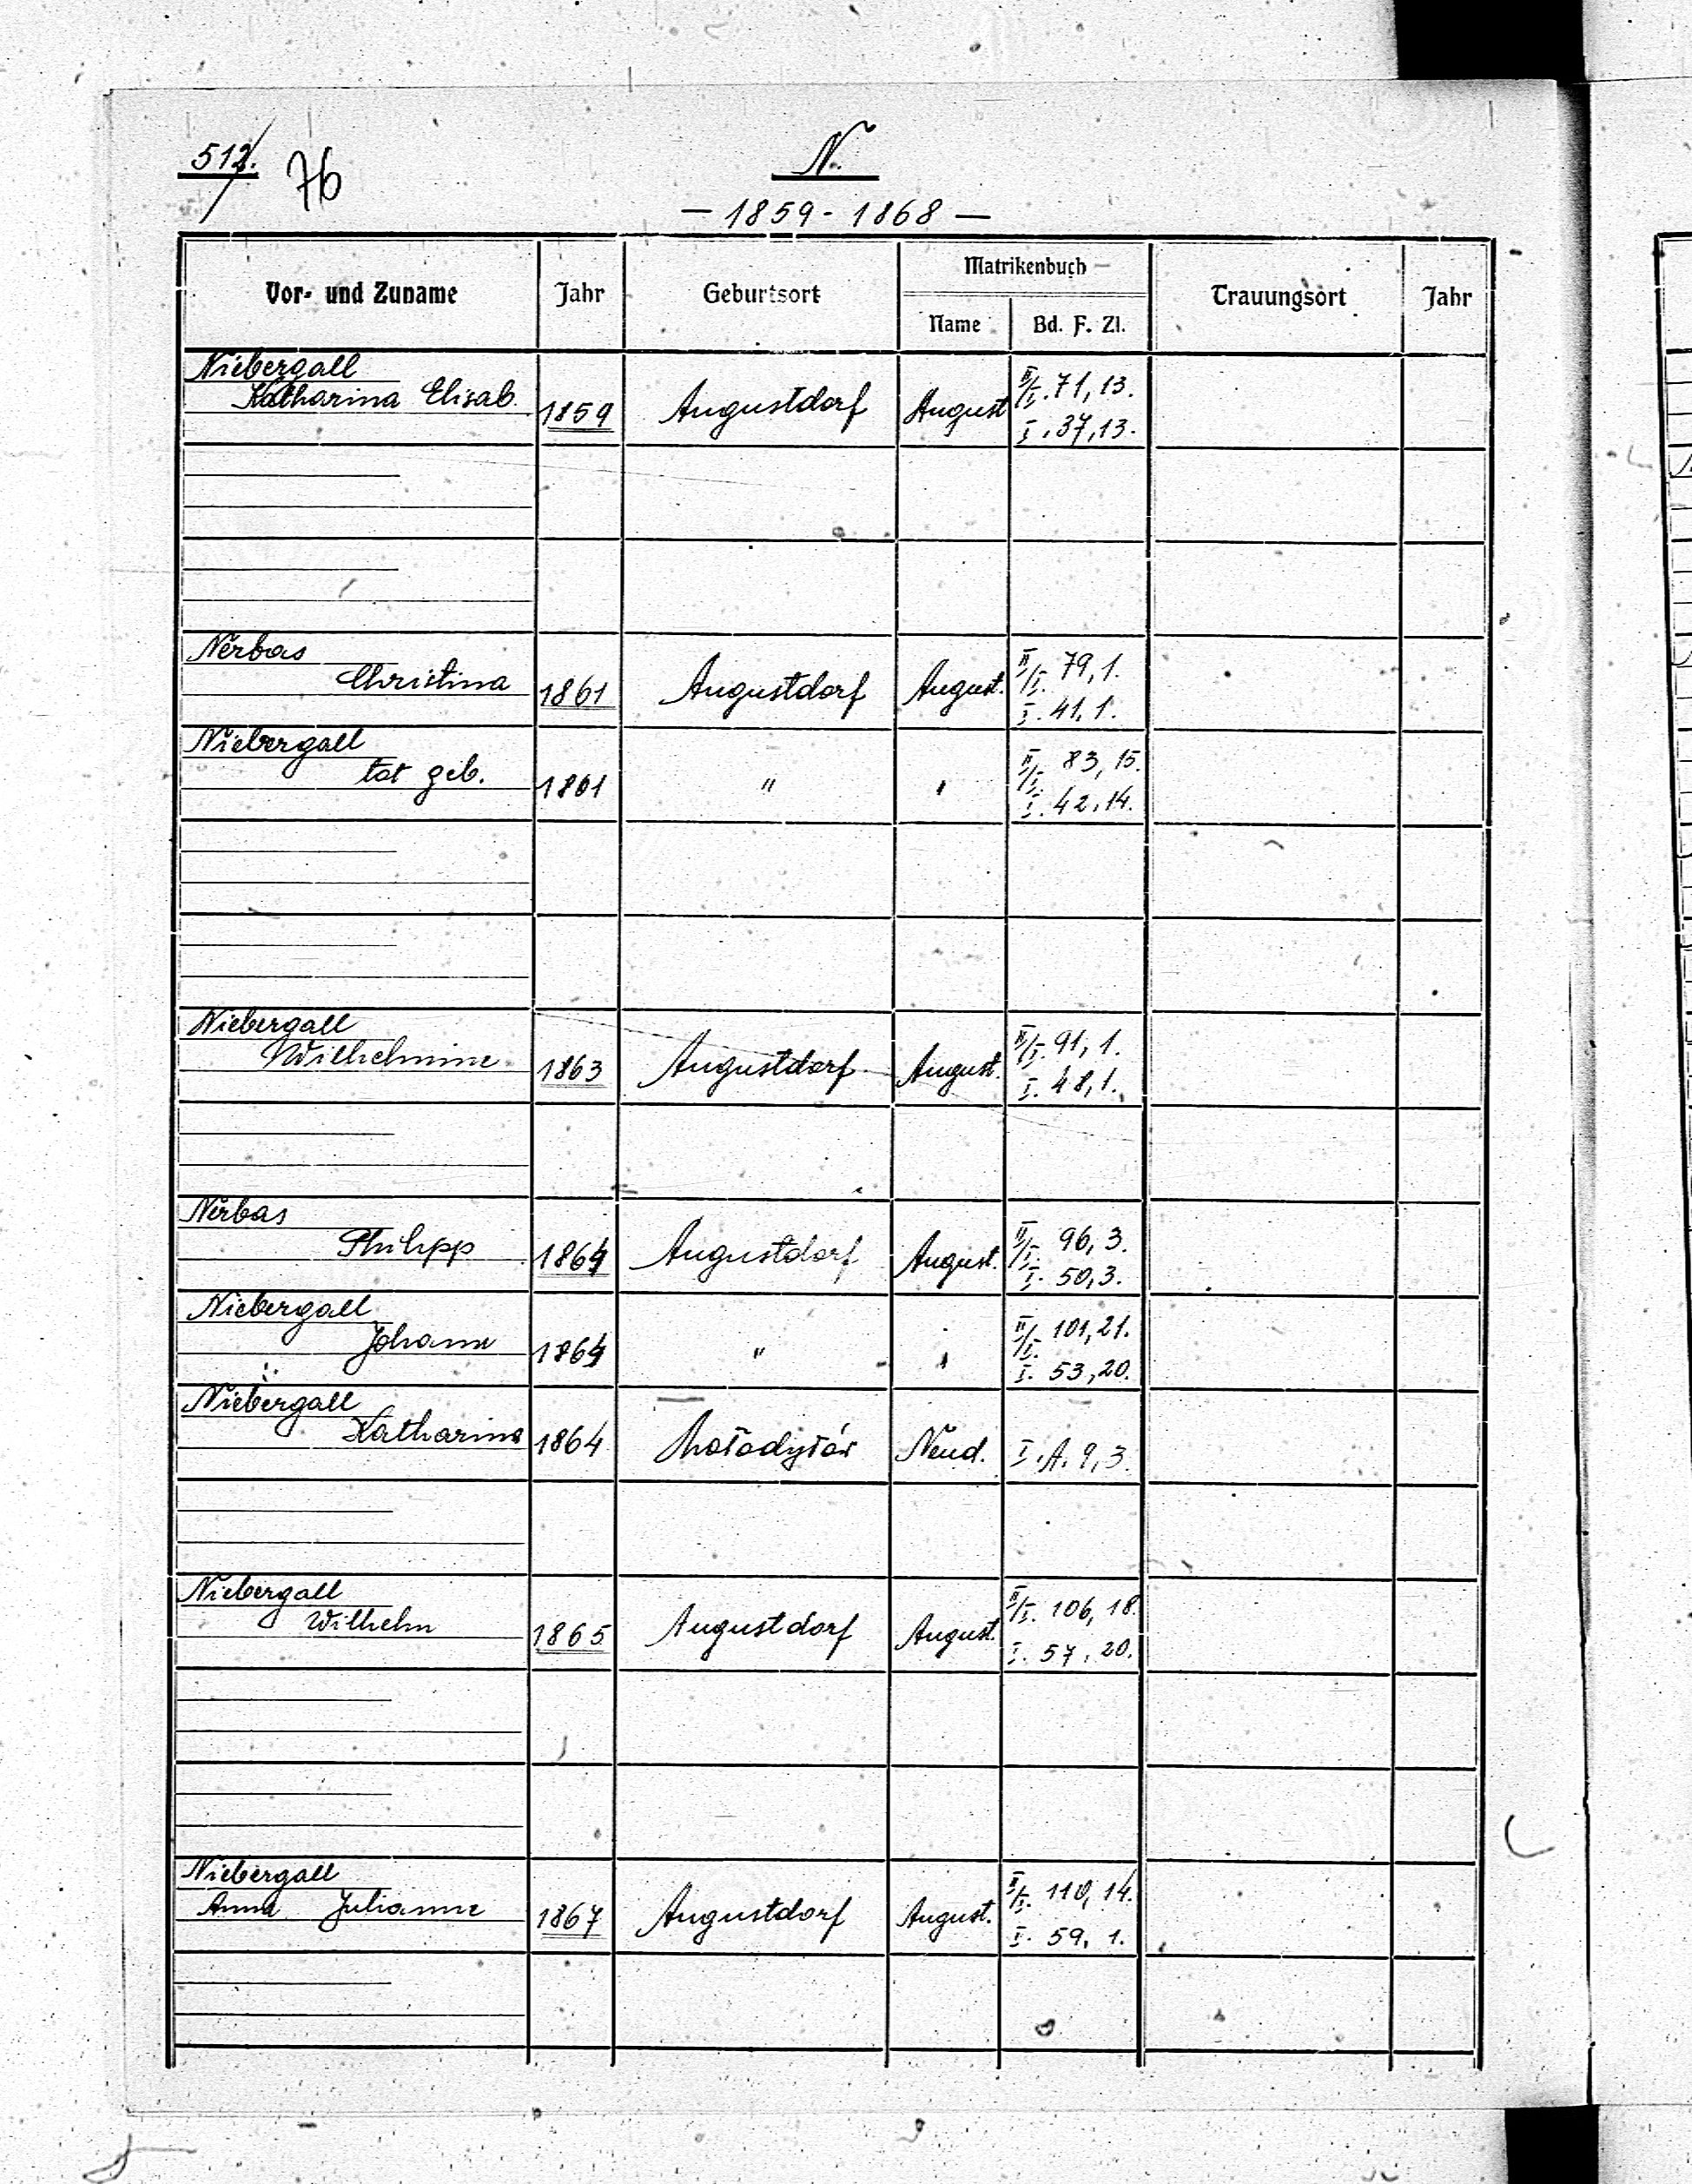 512. 76
N.
— 1859 - 1868 —
Vor- und Zuname Jahr Geburtsort Matrikenbuch Trauungsort Jahr
Name Bd. F. Zl.
Niebergall
Katharina Elisab. 1859 Augustdorf August II/I. 71, 13.
I. 37, 13.
Nerbas
Christina 1861 Augustdorf August. II/I. 79, 1.
I. 41, 1.
Niebergall
tot geb. 1861 " " II/I. 83, 15.
I. 42, 14.
Niebergall
Wilhelmine 1863 Augustdorf August. II/I. 91, 1.
I. 48, 1.
Nerbas
Philipp 1864 Augustdorf August. II/I. 96, 3.
I. 50, 3.
Niebergall
Johann 1864 " " II/I. 101, 21.
I. 53, 20.
Niebergall
Katharina 1864 Neud. I. A. 9, 3.
Niebergall
Wilhelm 1865 Augustdorf August. II/I. 106, 18.
I. 57, 20.
Niebergall
Anna Julianne 1867 Augustdorf August. II/I. 110, 14.
I. 59, 1.